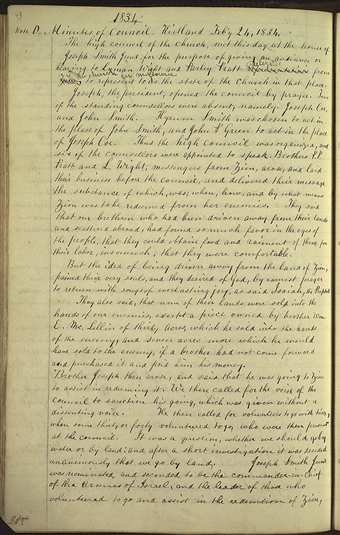 1834
Note D. Minutes of Council. Kirtland Feby 24, 1834.
The high council of the Church, met this day at the house of
Joseph Smith Junr for the purpose of giving an audience or
hearing to Lyman Wight and Parley Pratt from
to represent to us the state of the Church in that place.
Joseph, the president, opened the council by prayer. Two
of the standing counsellors were absent, namely Joseph Coe,
and John Smith. Hyrum Smith was chosen to act in
the place of John Smith, and John P. Green to act in the place
of Joseph Coe. Thus the high council was organized, and
six of the counsellors were appointed to speak. Brothers P. P.
Pratt and L. Wight, messengers from Zion, arose, and laid
their business before the council, and delivered their message
the substance of which was; when, how, and by what means
Zion was to be redeemed from her enemies. They said
that our brethren who had been driven away from their lands
and scattered abroad, had found so much favor in the eyes of
the people, that they could obtain food and raiment of them for
their labor, insomuch, that they were comfortable.
But the idea of being driven away from the land of Zion,
pained their very souls, and they desired of God, by earnest prayer
to return with songs of everlasting joy, as said Isaiah, the Prophet
They also said, that none of their lands were sold into the
hands of our enemies, except a piece owned by brother Wm
E. Mc. Lellin of thirty acres, which he sold into the hands
of the enemy, and seven acres more which he would
have sold to the enemy, if a brother had not come forward
and purchased it and paid him his money.
Brother Joseph then arose, and said that he was going to Zion
to assist in redeeming it. We then called for the voice of the
council to sanction his going, which was given without a
dissenting voice. He then called for volunteers to go with him,
when some thirty or forty volunteered to go, who were then present
at the council. It was a question, whether we should go by
water or by land; and after a short investigation it was decided
unanimously that we go by land. Joseph Smith Junr
was nominated, and seconded to be the commander-in-Chief
of the Armies of Israel, and the leader of those who
volunteered to go, and assist in the redemption of Zion,